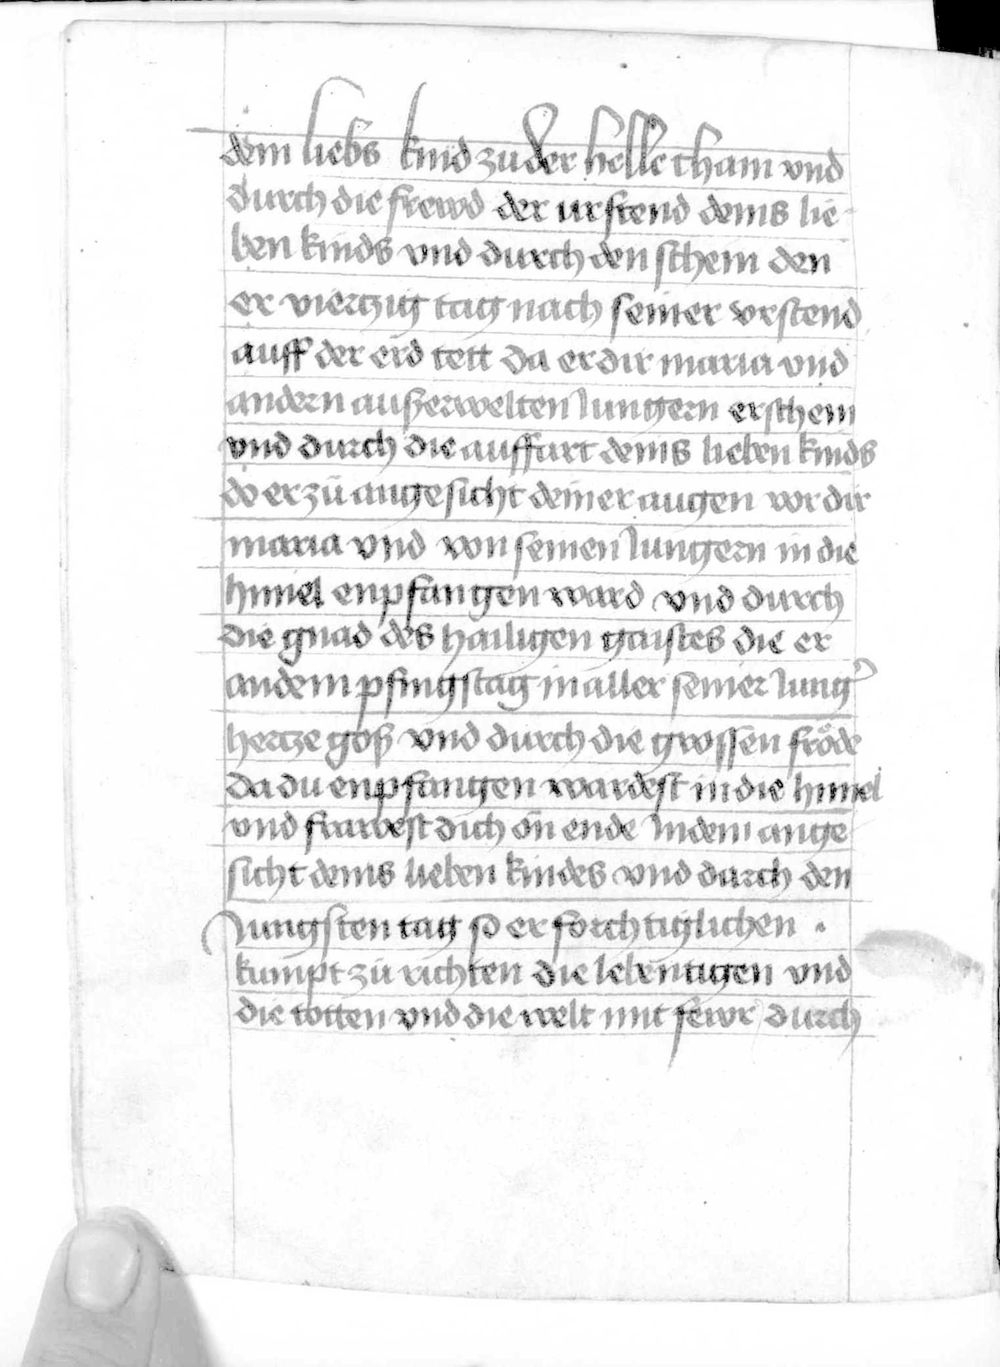 dein liebs kind zu der helle cham vnd
durch die frewd der urstend deins lie-
ben kinds vnd durch den schein den
er viertzig tag nach seiner vrstend
auff der erd tett da er dir maria vnd
andern außerwelten Jungern erschein
vnd durch die auffart deins lieben kinds
do er zu angesicht deiner augen vor dir
maria vnd von seinen Jungern in die
himel enpfangen ward vnd durch
die gnad des hailigen gaistes die er
an dem pfingstag in aller seiner Jung
hertze goß vnd durch die grossen fröde
da du enpfangen wardest in die himel
vnd frawest dich on ende In dem ange
sicht deins lieben kindes vnd durch den
Jungsten tag so er forchtiglichen .
kumpt zu richten die lebentigen vnd
die totten vnd die welt mit fewr durch